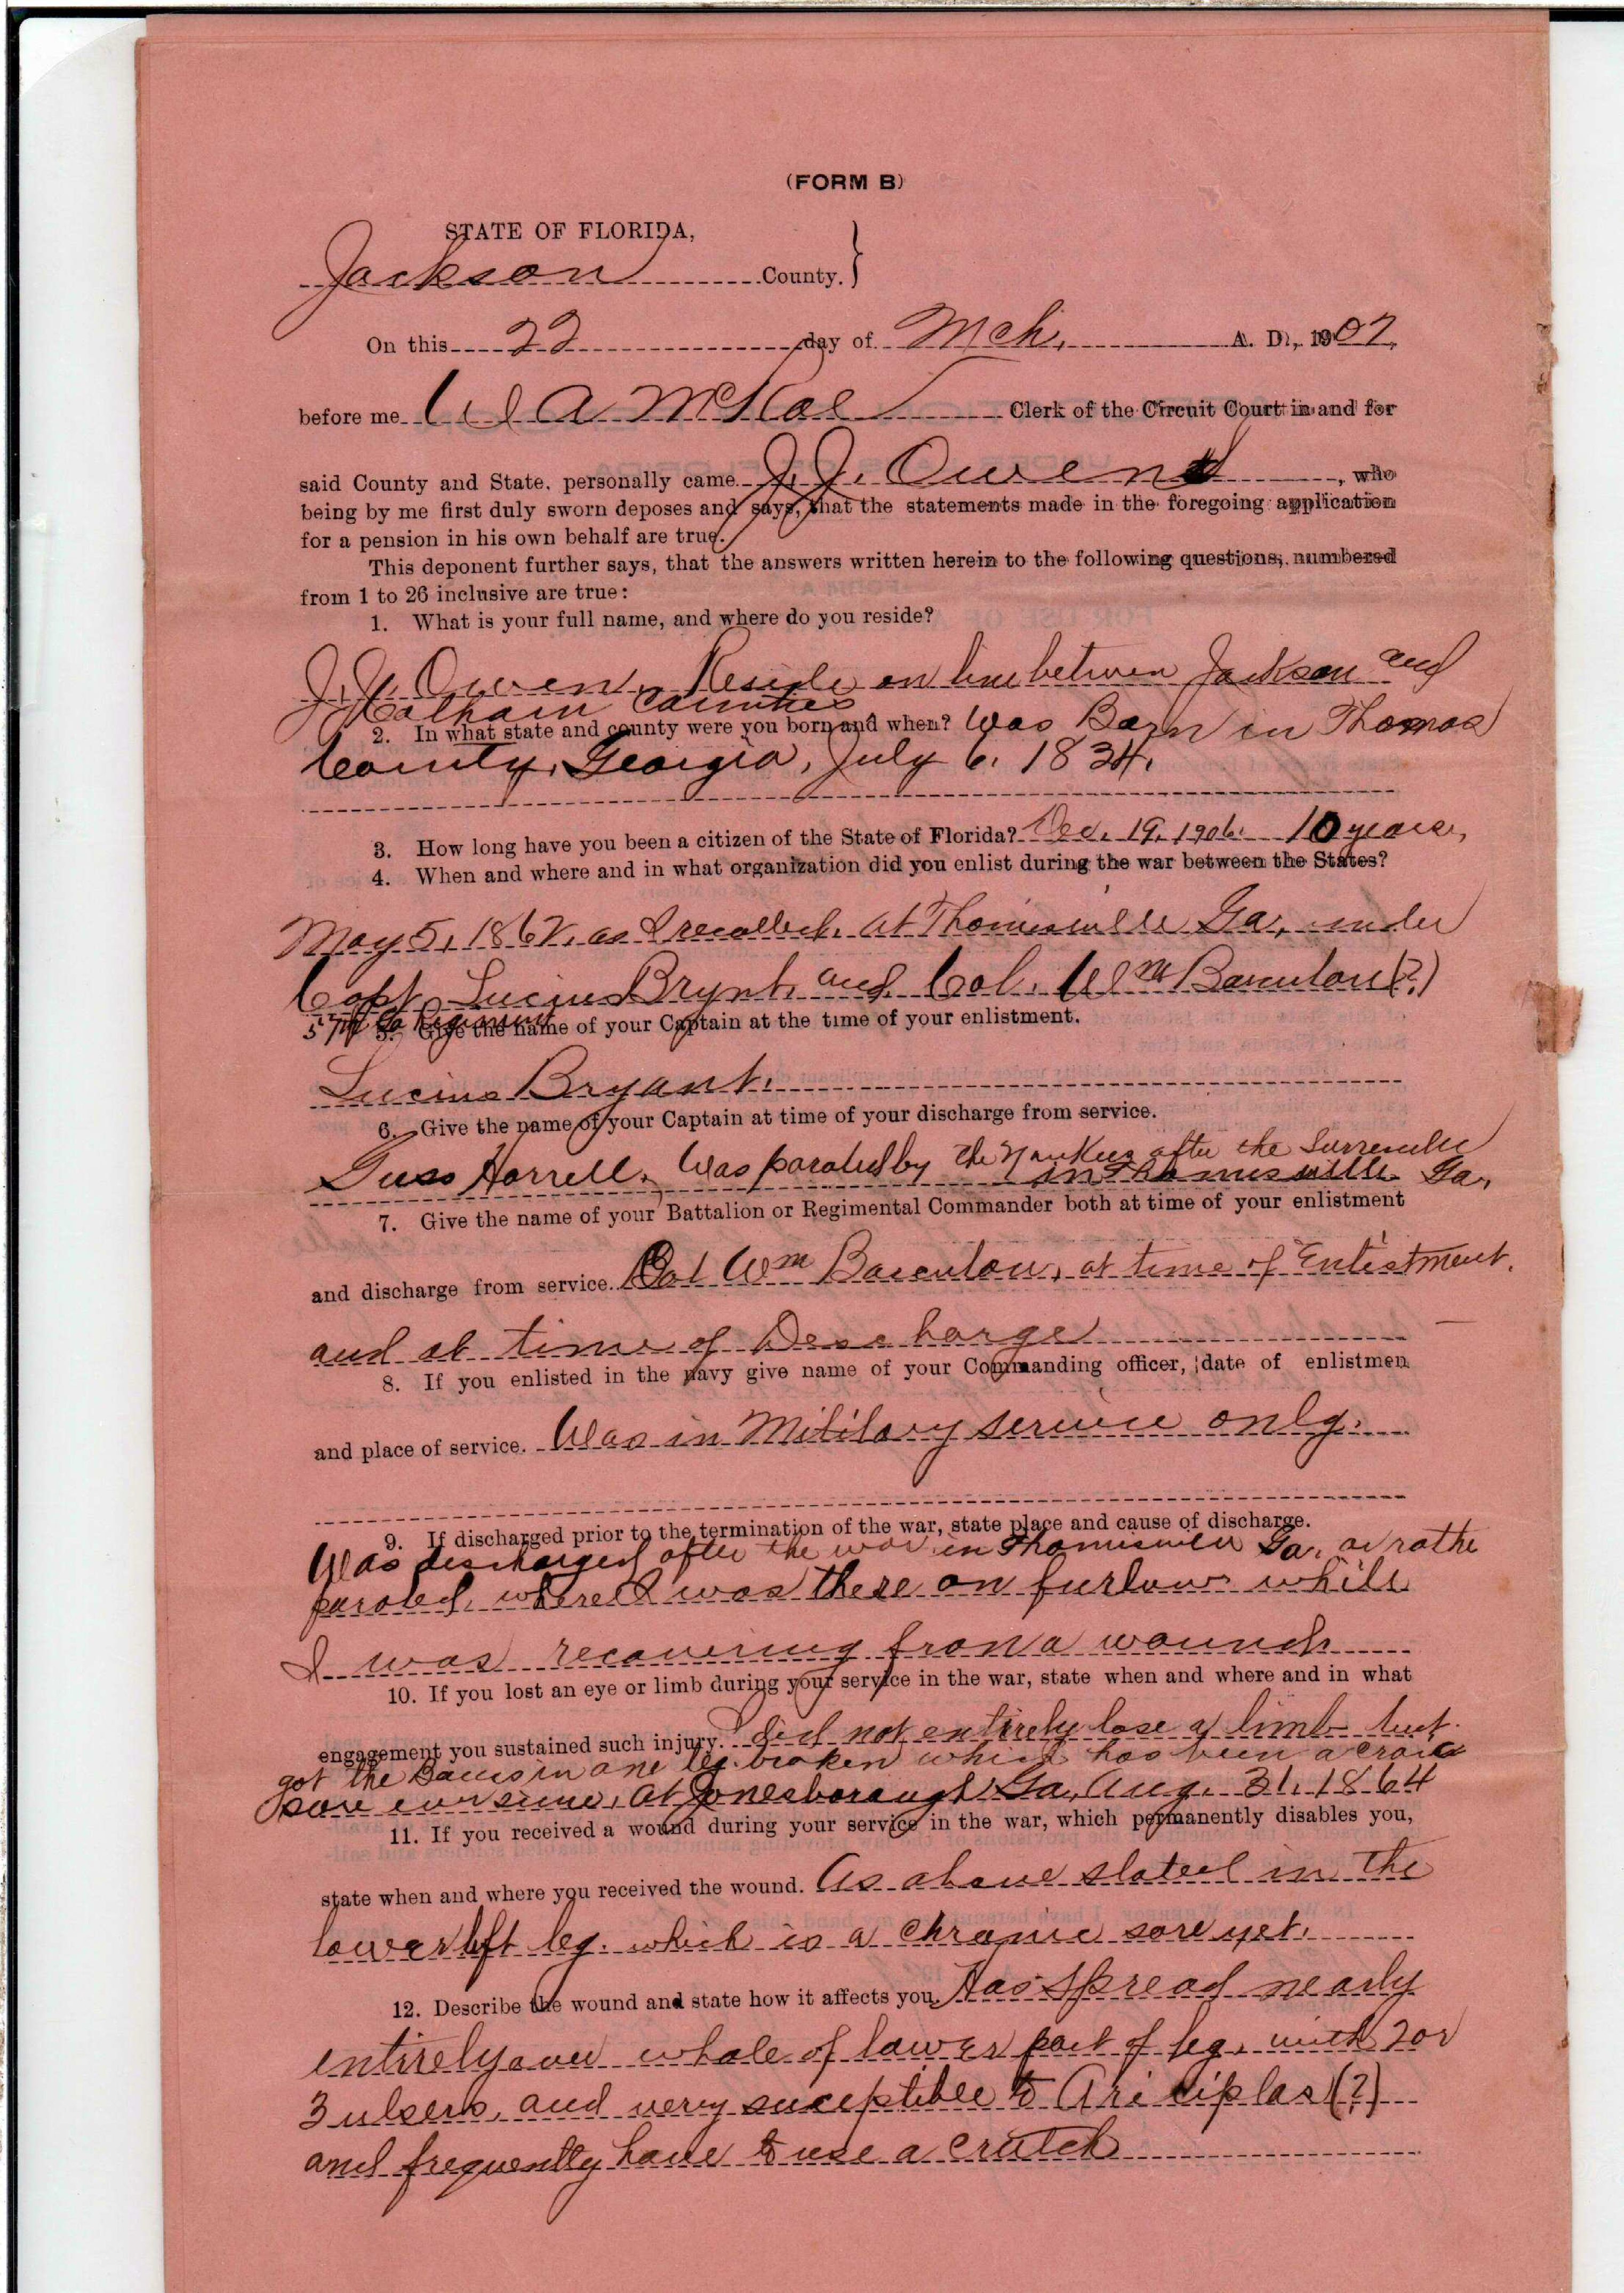 (FORM B)
STATE OF FLORIDA,
Jackson County. }
On this 22 day of Mch. A. D., 1907,
before me W A McRae Clerk of the Circuit Court in and for
said County and State. personally came J. J. Owen, who
being by me first duly sworn deposes and says, that the statements made in the foregoing application
for a pension in his own behalf are true.
This deponent further says, that the answers written herein to the following questions, numbered
from 1 to 26 inclusive are true:
1. What is your full name, and where do you reside?
J. J. Owen. Reside on line between Jackson and
Calhoun Counties
2. In what state and county were you born and when? Was Born in Thomas
County, Georgia, July 6. 1834.
3. How long have you been a citizen of the State of Florida? Dec. 19, 1906. 10 years,
4. When and where and in what organization did you enlist during the war between the States?
May 5, 1862, as I recollect. at Thomasville Ga, under
Capt. Lucius Brynt. and Col. Wm (?)
57th Ga Regiment
5. Give the name of your Captain at the time of your enlistment.
Lucius Bryant.
6. Give the name of your Captain at time of your discharge from service.
Guss Horrell. Was paroled by the Yankees after the Surrender
in Thomasville Ga,
7. Give the name of your Battalion or Regimental Commander both at time of your enlistment
and discharge from service. Col Wm at time of Enlistment,
and at time of Descharge
8. If you enlisted in the navy give name of your Commanding officer, date of enlistmen
and place of service. Was in Military service only.
9. If discharged prior to the termination of the war, state place and cause of discharge.
Was descharged after the war in Thomasville Ga, or rathe
paroled, where I was there on furlow while
I was recovering from a wound
10. If you lost an eye or limb during your service in the war, state when and where and in what
engagement you sustained such injury. did not entirely lose a limb but
got the Bones in one leg broken which has been a
sore ever since, at Jonesborough Ga, Aug. 31. 1864
11. If you received a wound during your service in the war, which permanently disables you,
state when and where you received the wound. As above stated in the
lower left leg. which is a chronic sore yet.
12. Describe the wound and state how it affects you. Has spread nearly
entirely over whole of lower part of leg, with 2 or
3 ulsers, and very suceptible to Ariciplas (?)
and frequently have to use a crutch